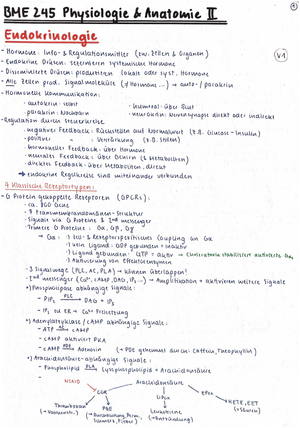 BME 245 Physiologie & Anatomie II
Endokrinologie
V1
- Hormone: Info- & Regulationsmittler (zw. Zellen & Organen)
- Endokrine Drüsen: sezernieren systemische Hormone
- Disseminierte Drüsen: produzieren lokale oder syst. Hormone
- Alle Zellen prod. Signalmoleküle (≠ Hormone ...) → auto- / parakrin
- Hormonelle Kommunikation:
· autokrin: selbst · humoral: über Blut
· parakrin: Nachbarn · neurokrin: Nervensynapse direkt oder indirekt
- Regulation durch Steuerkreise
· negativer Feedback: Rückstellen auf Normalwert (z.B. Glucose - Insulin)
· positiver " : Verstärkung (z.B. Stillen)
· hormoneller Feedback: über Hormone
· neurales Feedback: über Gehirn (& Metaboliten)
· direktes Feedback: über Metaboliten, direkt
→ endokrine Regelkreise sind miteinander verbunden
4 Klassische Rezeptortypen:
- G Protein gekoppelte Rezeptoren (GPCRs):
- ca. 800 Gene
- 7 Transmembrandomänen-Struktur
- Signale via G Proteine & 2nd messenger
- Trimere G Proteine: Gα, Gβ, Gγ
→ Gα: · Zell- & Rezeptorspezifisches Coupling an Gα
· kein Ligand: GDP gebunden = inaktiv
· Ligand gebunden: GTP = aktiv →
· Aktivierung von Effektorenzymen
- 3 Signalwege (PLC, AC, PLA) → können überlappen!
- 2nd messenger (Ca2+, cAMP, DAG, IP3 ...) → Amplifikation + aktivieren weitere Signale
•) Phospholipase abhängige Signale:
- PIP2 PLC → DAG + IP3
- IP3 zu ER → Ca2+ Freisetzung
•) Adenylatzyklase / cAMP abhängige Signale:
- ATP AC → cAMP
- cAMP aktiviert PKA
- cAMP PDE → Adenosin (→ PDE gehemmt durch: Coffein, Theophyllin)
•) Arachidonsäure-abhängige Signale:
- Phospholipid PLA2 → Lysophospholipid + Arachidonsäure
-
Arachidonsäure
NSAID
COX Lipox EPOX
HETE, EET
Thromboxan PGE Leukotriene
(→ Entzündung)